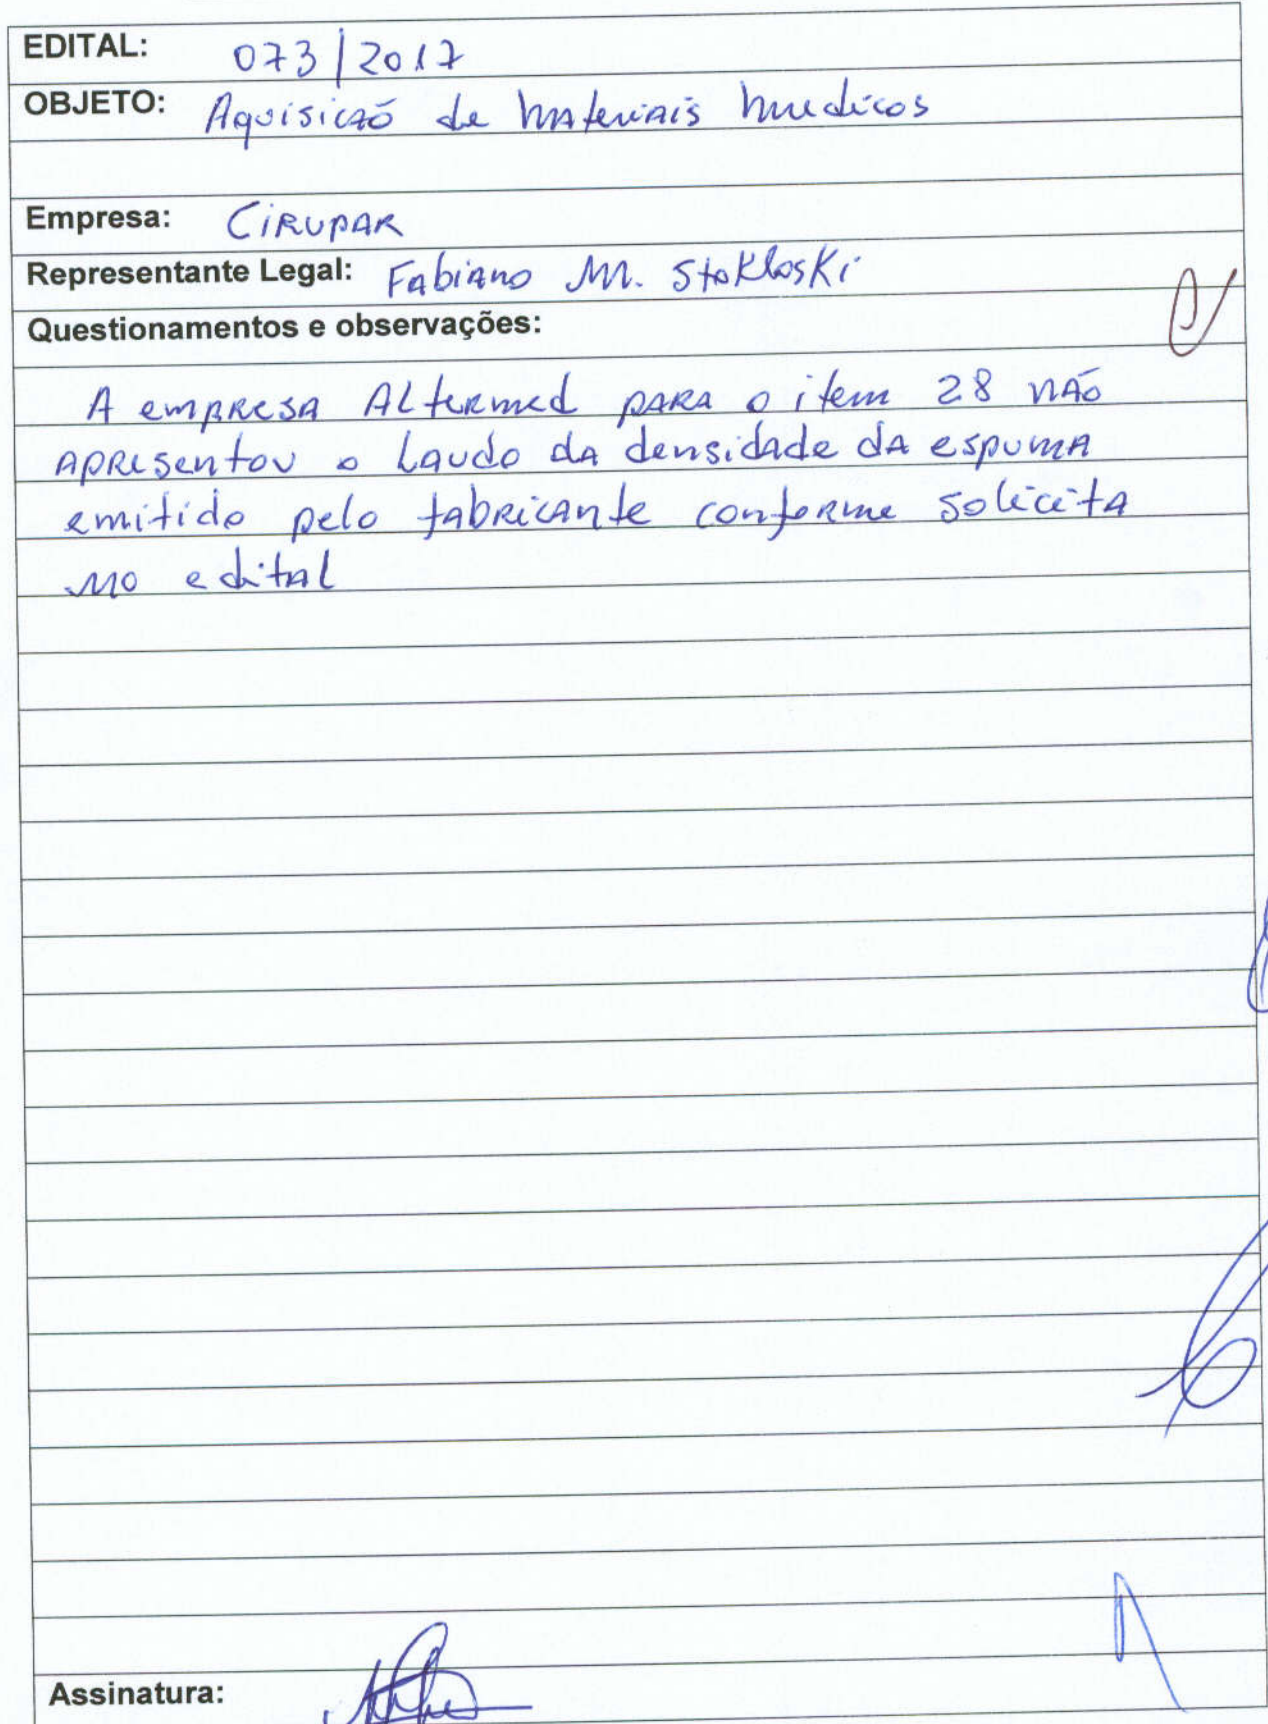 EDITAL: 073/2017
OBJETO: Aquisicaõ de materiais medicos
Empresa: CIRUPAR
Representante Legal: Fabiano M. Stokloski
Questionamentos e observações:
A empresa Altermed para o item 28 não
apresentou o laudo da densidade da espuma
emitido pelo fabricante conforme solicita
no edital
Assinatura: